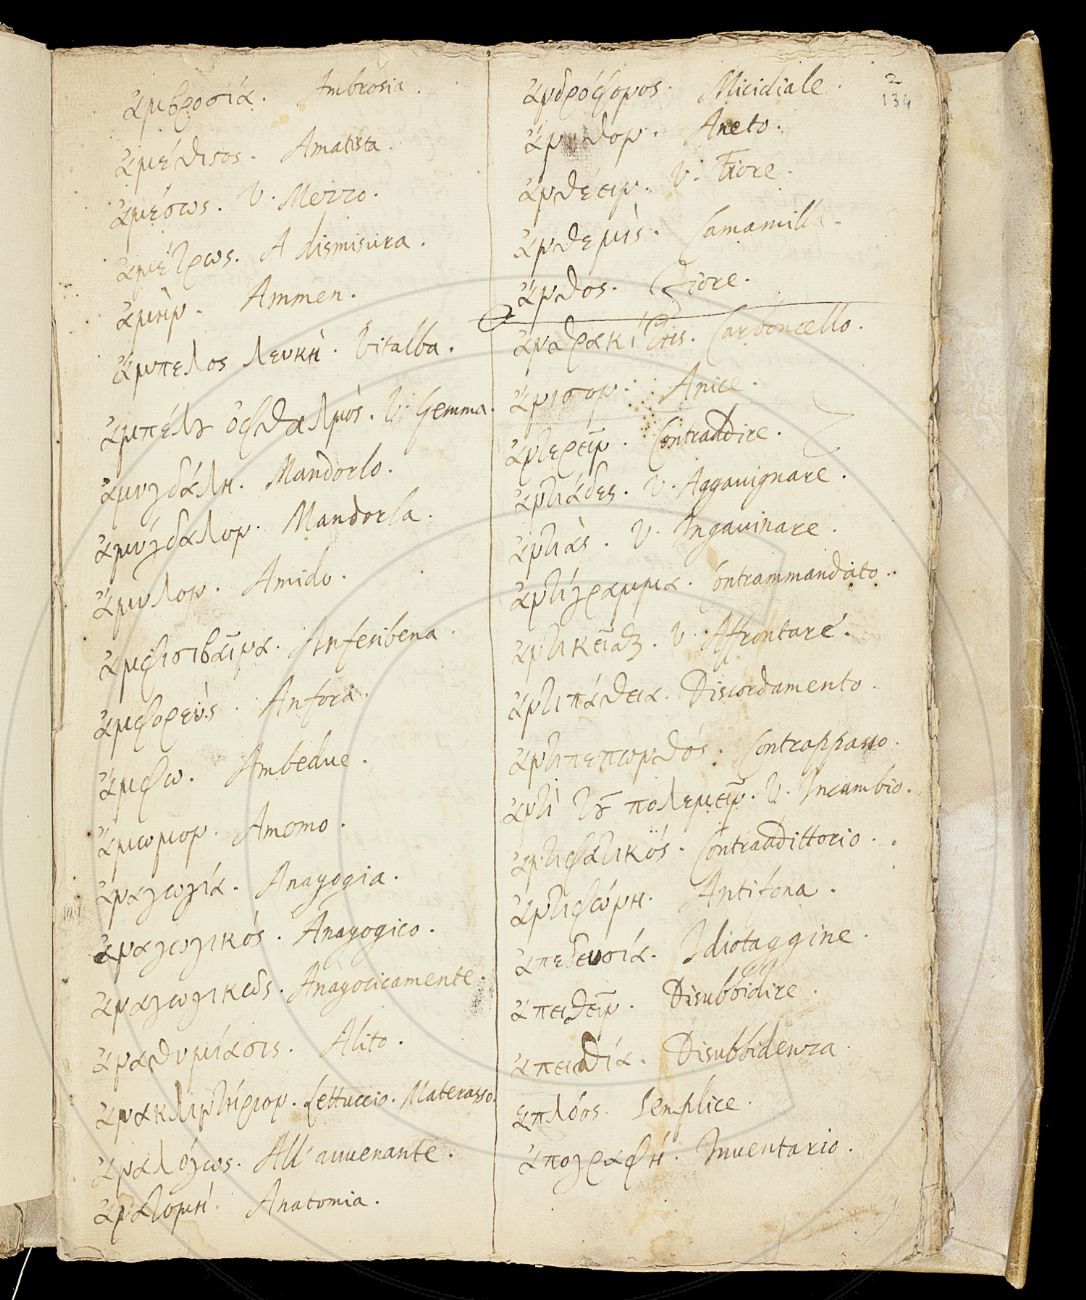 ἀμβροσία. Ambrosia.
ἀμέθισος. Amatista.
ἀμέσως. V. Mezzo.
ἀμέτρως. A dismisura.
ἀμήν. Ammen.
ἄμπελος λευκή. Vitalba.
ἀμπέλου ὀφθαλμός. V. Gemma.
ἀμυγδάλη. Mandorlo.
ἀμύγδαλον. Mandorla.
ἄμυλον. Amido.
ἀμφισιβαῖνα. Anfesibena.
ἀμφορεύς. Anfora.
ἄμφω. Ambedue.
ἄμωμον. Amomo.
ἀναγωγία. Anagogia.
ἀναγωγικός. Anagogico.
ἀναγωγικῶς. Anagogicamente.
ἀναθυμίασις. Alito.
ἀνακλιντήριον. Lettuccio. Materasso.
ἀναλόγως. All'auuenante.
ἀνατομή. Anatomia.
2
134
ἀνδρόφονος. Micidiale.
ἄνηθον. Aneto.
ἀνθέειν. V. Fiore.
ἀνθεμίς. Camamilla.
ἄνθος. Fiore.
ἀνθρακίτης. Carboncello.
ἄνισον. Anice.
ἀντερεῖν. Contraddire.
ἀντιάδες. V. Aggauignare.
ἀντιάς. V. Ingauinare.
ἀντίγραμμα. Contrammandato.
ἀντικεῖσθαι. V. Affrontare.
ἀντιπάθεια. Discordamento.
ἀντιπεπωνθός. Contrappasso.
ἀντὶ τοῦ πολεμεῖν. V. Incambio.
ἀντιφατικός. Contraddittorio.
ἀντιφώνη. Antifona.
ἀπεδευσία. Idiotaggine.
ἀπειθεῖν. Disubbidire.
ἀπειθία. Disubbidenza.
ἁπλόος. Semplice.
ἀπογραφή. Inuentario.